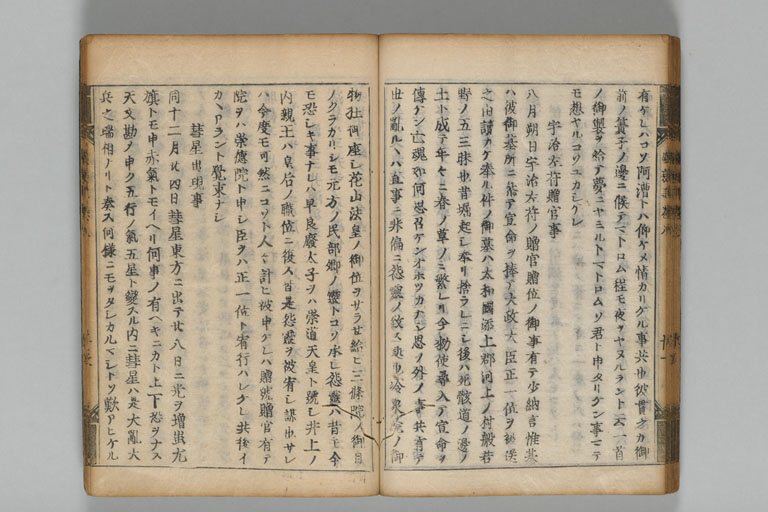 有ケレハコソ阿漕トハ仰ケメ情カリケル事共也彼貫之カ御
前ノ簀子ノ邊ニ候テマトロム程モ夜ヲヤヌルラント云一首
ノ御製ヲ給テ夢ニヤミルトマトロムソ君ト申タリケン事マテ
モ想ヤルコソユカシケレ
宇治左府贈官事
八月朔日宇治左府ノ贈官贈位ノ御事有テ少納言惟基
ハ彼御墓所ニ詣テ宣命ヲ捧テ太政大臣正一位ヲ被送
之由讀カケ奉リ件ノ御墓ハ大和國添上郡河上ノ村般若
野ノ五三昧也昔堀起シ奉リ捨ラレニシ後ハ死骸道ノ邊ノ
土ト成テ年々ニ春ノ草ノミ繁レリ今勅使尋入テ宣命ヲ
傳ケン亡魂如何思召ケンイホツカナシ思ノ外ノ事共有テ
世ノ亂ルヽハ直事ニ非偏ニ怨靈ノ致ス処也冷泉院ノ御
物狂御座シ花山法皇ノ御位ヲサラせ給ヒ三條院ノ御目
ノクラカリシモ元方ノ民部卿ノ靈トコソ承レ怨靈ハ昔モ今
モ恐シキ事ナレハ早良廢太子ヲハ崇道天皇ト號シ井上ノ
内親王ハ皇后ノ職位ニ復ス皆是怨靈ヲ被宥シ謀也サレ
ハ今度モ可然ニコソト人々計ヒ被申ケレハ贈號贈官有テ
院ヲハ崇德院ト申シ臣ヲハ正一位ト宥行ハレケレ共後イ
カヽアラント覺束ナシ
彗星出現事
同十二月廿四日彗星東方ニ出テ廿八日ニ光ヲ增蚩尤
旗トモ申赤氣トモイヘリ何事ノ有ヘキニカト上下恐ヲナス
天文勘ノ申ク五行ノ氣五星ト變スル内ニ彗星ハ是大亂大
兵之瑞相ノリト奏ス何樣ニモヲタシカルマシトソ歎アヒケル